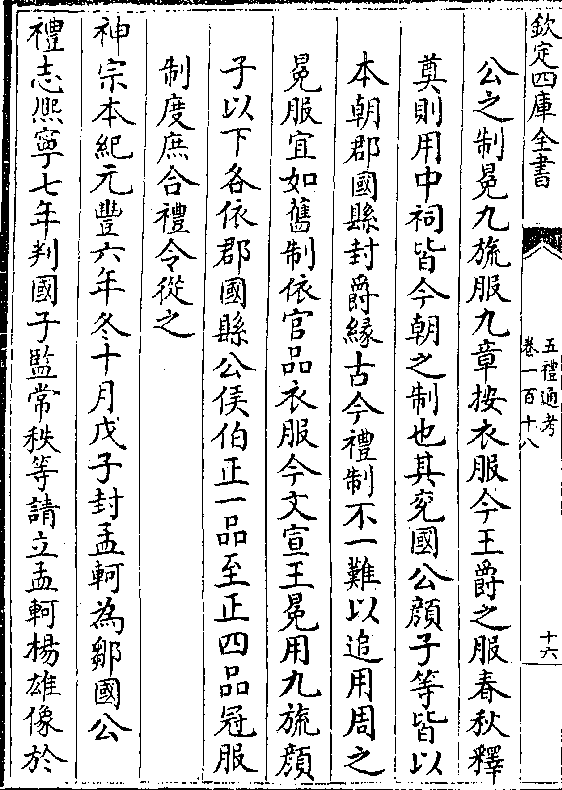 欽定四庫全書
五禮通考
卷一百十八
十六
公之制冕九旒服九章按衣服令王爵之服春秋釋
奠則用中祠皆今朝之制也其兖國公顔子等皆以
本朝郡國縣封爵緣古今禮制不一難以追用周之
冕服宜如舊制依官品衣服令文宣王冕用九旒顔
子以下各依郡國縣公侯伯正一品至正四品冠服
制度庶合禮令從之
神宗本紀元豐六年冬十月戊子封孟軻為鄒國公
禮志熈寧七年判國子監常秩等請立孟軻楊雄像於